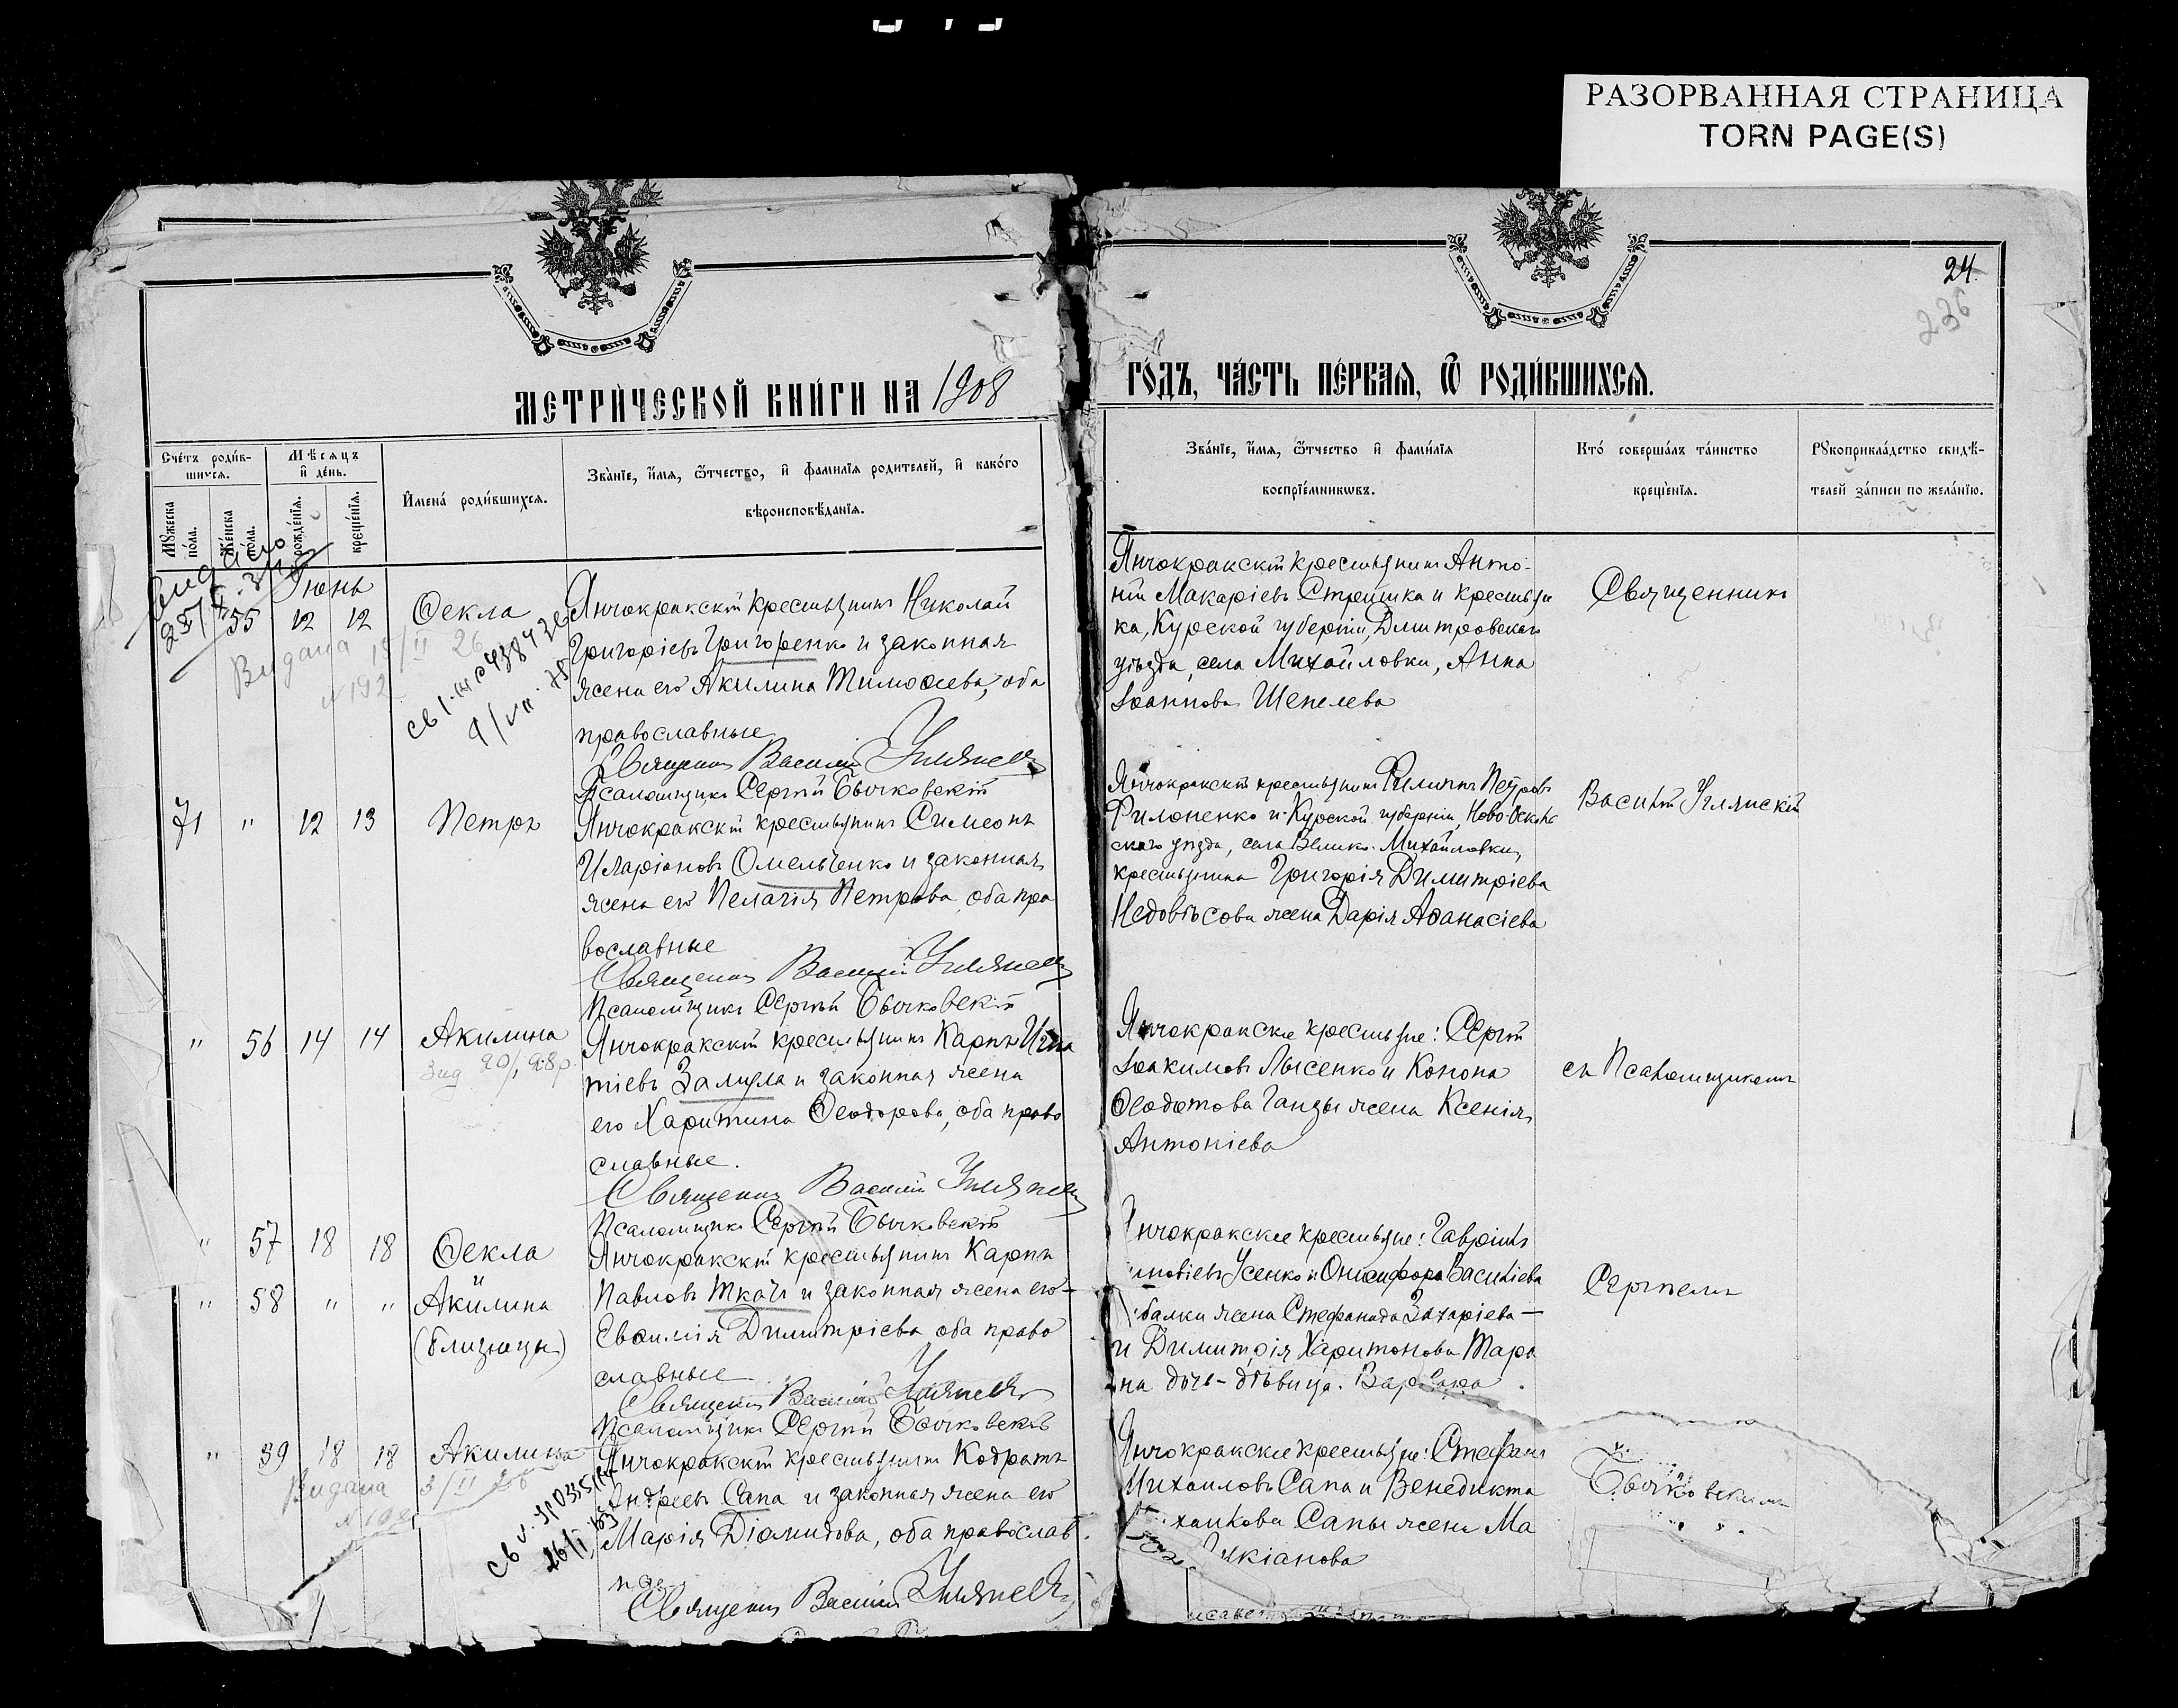 РАЗОРВАННАЯ СТРАНИЦА
TORN PAGE(S)
24.
236
МЕТРИ́ЧЕСКОЙ КНИ́ГИ НА 1908
ГО́ДЪ, ЧА́СТЬ ПЕ́РВАѦ, Ѿ РОДИ́ВШИХСѦ.
Сче́тъ роди́в-
шихсѧ.
Мѣ́сѧцъ
и҆ де́нь.
Мꙋ́жеска по́ла.
Же́нска по́ла.
рожде́нїѧ.
креще́нїѧ.
И҆мена́ роди́вшихсѧ.
Зва́нїе, и҆́мѧ, ѻ҆́тчество, и҆ фами́лїѧ роди́телей, и҆ како́гѡ
вѣроисповѣ́данїѧ.
Зва́нїе, и҆́мѧ, ѻ҆́тчество и҆ фами́лїѧ
воспрїе́мникѡвъ.
Кто̀ соверша́лъ та́инство
креще́нїѧ.
Рꙋкоприкла́дство свидѣ́-
телей за́писи по жела́нїю.
Іюнь
55 12 12 Ѳекла
Янчокракскій крестьянинъ Николай
Григоріевъ Григоренко и законная
жена его Акилина Тимоѳеева, оба
православные
Священникъ Василій Углянскій
Псаломщикъ Сергій Бычковскій
Видана 13/II 26
№ 192
Янчокракскій крестьянинъ Анто-
ній Макаріевъ Стрицька и крестьян
ка, Курской губерніи, Дмитровскаго
уѣзда, села Михайловки, Анна
Іоаннова Шепелева
Священникъ
71 " 12 13 Петръ
Янчокракскій крестьянинъ Симеонъ
Иларіоновъ Омельченко и законная
жена его Пелагія Петрова, оба пра
вославные
Священникъ Василій Углянскій
Псаломщикъ Сергій Бычковскій
Янчокракскій крестьянинъ Филиппъ Петровъ
Филоненко и Курской губерніи, Ново-Осколь
скаго уѣзда, села Велико-Михайловки,
крестьянина Григорія Димитріева
Недовѣсова жена Дарія Аѳанасіева
Василій Углянскій
" 56 14 14 Акилина
Янчокракскій крестьянинъ Карпъ Игна
тіевъ Залила и законная жена
его Харитина Ѳеодорова, оба право
славные.
Священникъ Василій Углянскій
Псаломщикъ Сергій Бычковскій
Янчокракские крестьяне: Сергій
Іоакимовъ Лысенко и Конона
Ѳеодотова Ганзы жена Ксенія
Антоніева
съ Псаломщикомъ
" 57 18 18 Ѳекла
" 58 " " Акилина
(близнецы)
Янчокракскій крестьянинъ Карпъ
Павловъ Ткачъ и законная жена его
Евѳимія Димитріева, оба право
славные
Священникъ Василій Углянскій
Псаломщикъ Сергій Бычковскій
Янчокракские крестьяне: Гавріилъ
Усенко и Онисифора Василіева
жена Стефанида Захаріева —
и Димитрія Харитонова Тара
на дочь-дѣвица Варвара
Сергіемъ
" 59 18 18 Акилина
Янчокракскій крестьянинъ Кодратъ
Андреевъ Сапа и законная жена его
Марія Діомидова, оба православ
ные
Священникъ Василій Углянскій
Видана 3/II
Янчокракские крестьяне: Стефанъ
Михайловъ Сапа и Венедикта
Сапы жена Ма
Бычковскимъ